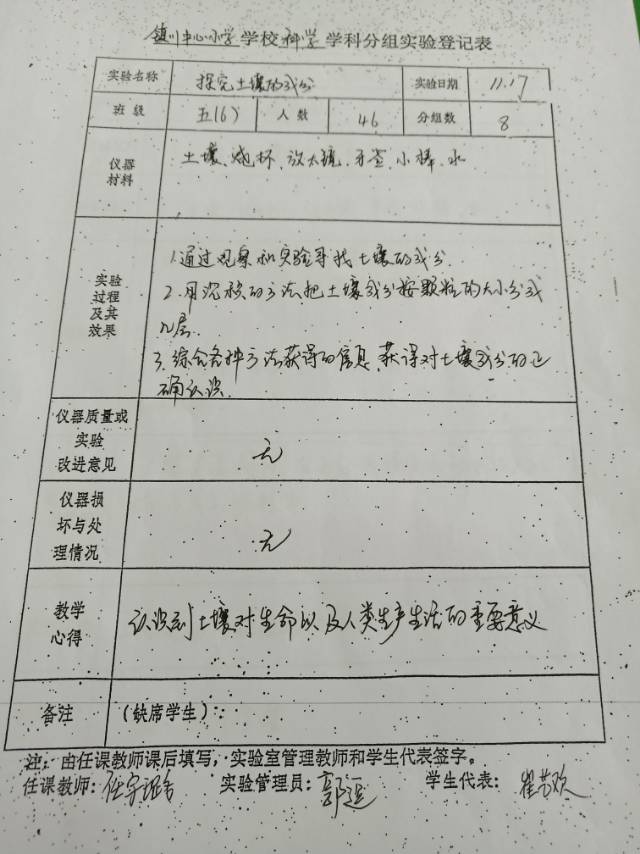 镇川中心小学学校科学学科分组实验登记表
实验名称 探究土壤的成分 实验日期 11.17
班级 五(6) 人数 46 分组数 8
仪器材料 土壤、烧杯、放大镜、牙签、小棒、水
实验过程及其效果
1.通过观察和实验寻找土壤的成分.
2.用沉积的方法把土壤成分按颗粒的大小分成
几层.
3.综合各种方法获得的信息,获得对土壤成分的正
确认识.
仪器质量或实验改进意见 无
仪器损坏与处理情况 无
教学心得 认识到土壤对生命以及人类生产生活的重要意义
备注 (缺席学生):
注:由任课教师课后填写,实验室管理教师和学生代表签字。
任课教师: 实验管理员: 学生代表: